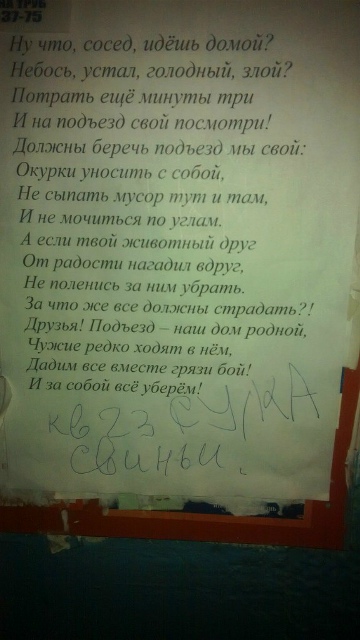 НА ТРУБ
37-75
Ну что, сосед, идёшь домой?
Небось, устал, голодный, злой?
Потрать ещё минуты три
И на подъезд свой посмотри!
Должны беречь подъезд мы свой:
Окурки уносить с собой,
Не сыпать мусор тут и там,
И не мочиться по углам.
А если твой животный друг
От радости нагадил вдруг,
Не поленись за ним убрать.
За что же все должны страдать?!
Друзья! Подъезд – наш дом родной,
Чужие редко ходят в нём,
Дадим все вместе грязи бой!
И за собой всё уберём!
кв 23 СУКА
свиньи.